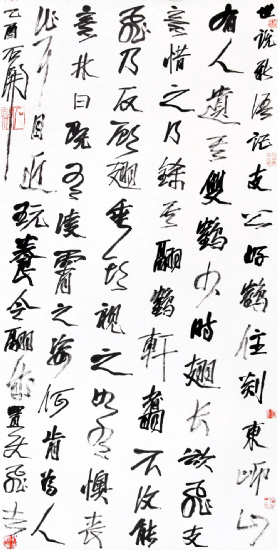 世說新語記支公好鶴住剡東岇山
有人遺其雙鶴少時翅長欲飛支
意惜之乃鎩其翮鶴軒翥不復能
飛乃反顧翅垂頭視之如有懊喪
意林曰既有凌霄之姿何肯為人
作耳目近玩養令翮成置使飛去
乙酉石開